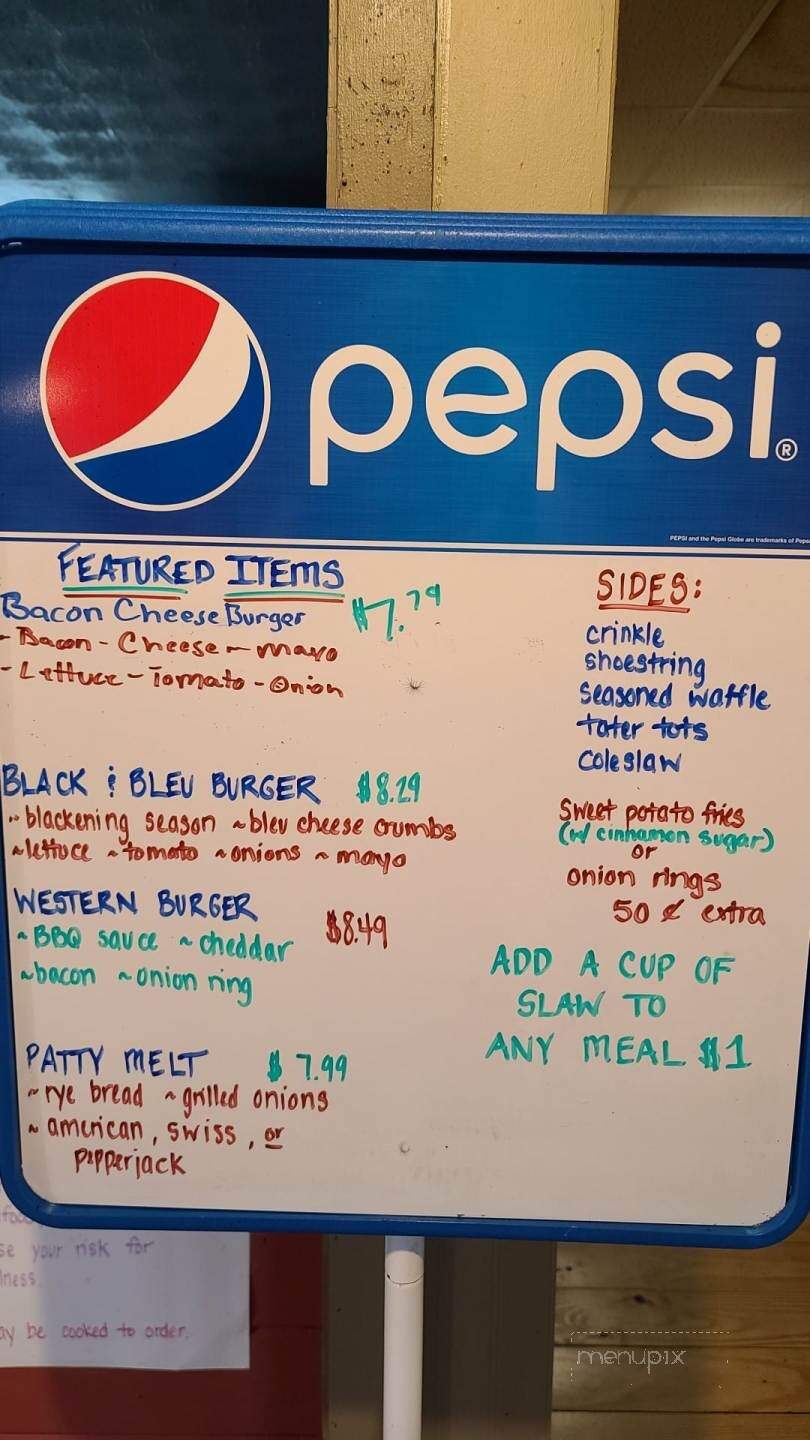 pepsi®
PEPSI and the Pepsi Globe are trademarks of Peps
FEATURED ITEMS
Bacon Cheese Burger $7.79
- Bacon - Cheese - mayo
- Lettuce - Tomato - Onion
BLACK & BLEU BURGER $8.29
~ blackening season ~ bleu cheese crumbs
~ lettuce ~ tomato ~ onions ~ mayo
WESTERN BURGER $8.49
~ BBQ sauce ~ cheddar
~ bacon ~ onion ring
PATTY MELT $7.99
~ rye bread ~ grilled onions
~ american, swiss, or
pepperjack
SIDES:
crinkle
shoestring
seasoned waffle
tater tots
coleslaw
Sweet potato fries
(w/ cinnamon sugar)
or
onion rings
50¢ extra
ADD A CUP OF
SLAW TO
ANY MEAL $1
se your risk for
lness
ay be cooked to order.
menupix